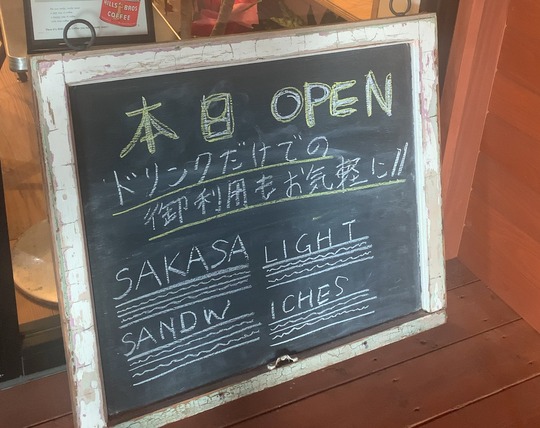 HILLS BROS
COFFEE
本日 OPEN
ドリンクだけでの
御利用もお気軽に!!
SAKASA LIGHT
SANDW ICHES